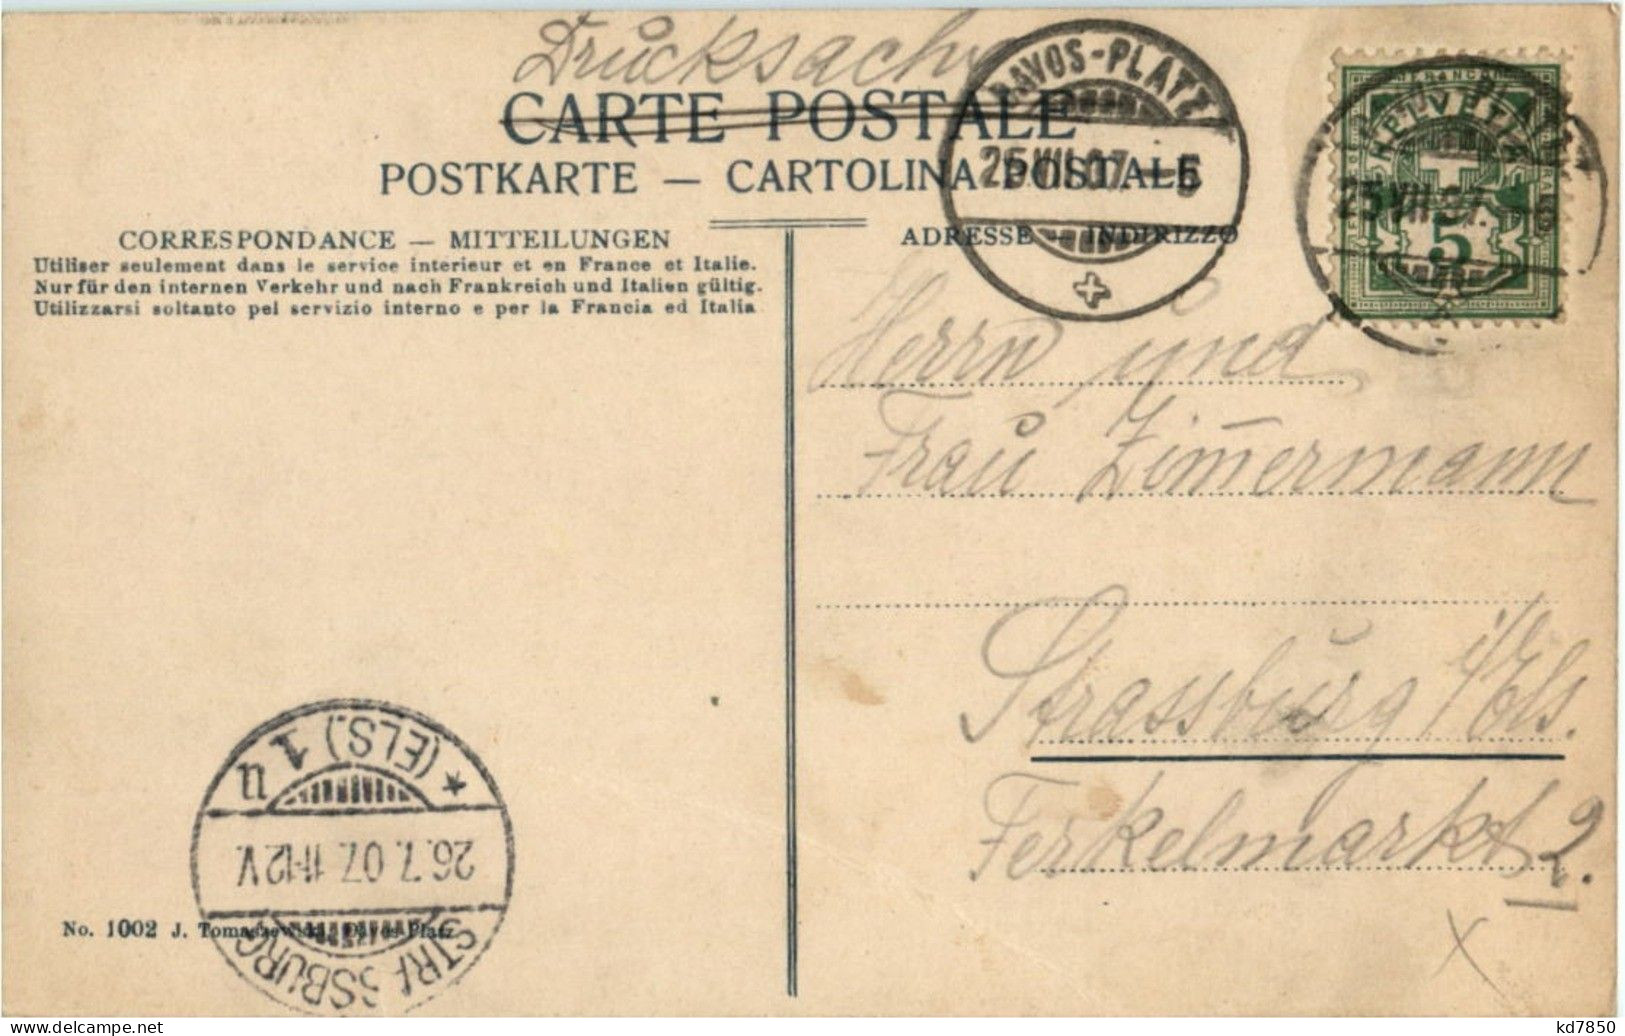 Drucksache
CARTE POSTALE
POSTKARTE — CARTOLINA POSTALE
DAVOS-PLATZ
25.VII.07.-5
FRANCO
HELVETIA
PLATZ
25.VII.07.
5
CORRESPONDANCE — MITTEILUNGEN
ADRESSE — INDIRIZZO
Utiliser seulement dans le service interieur et en France et Italie.
Nur für den internen Verkehr und nach Frankreich und Italien gültig.
Utilizzarsi soltanto pel servizio interno e per la Francia ed Italia
Herrn und
Frau Zim̅ermann
Strassburg i/Els.
Ferkelmarkt 2.
STRASSBURG
26.7.07.11-12V.
* (ELS.) 1 u
No. 1002 J. Tomaszewski, Davos-Platz
delcampe.net
kd7850